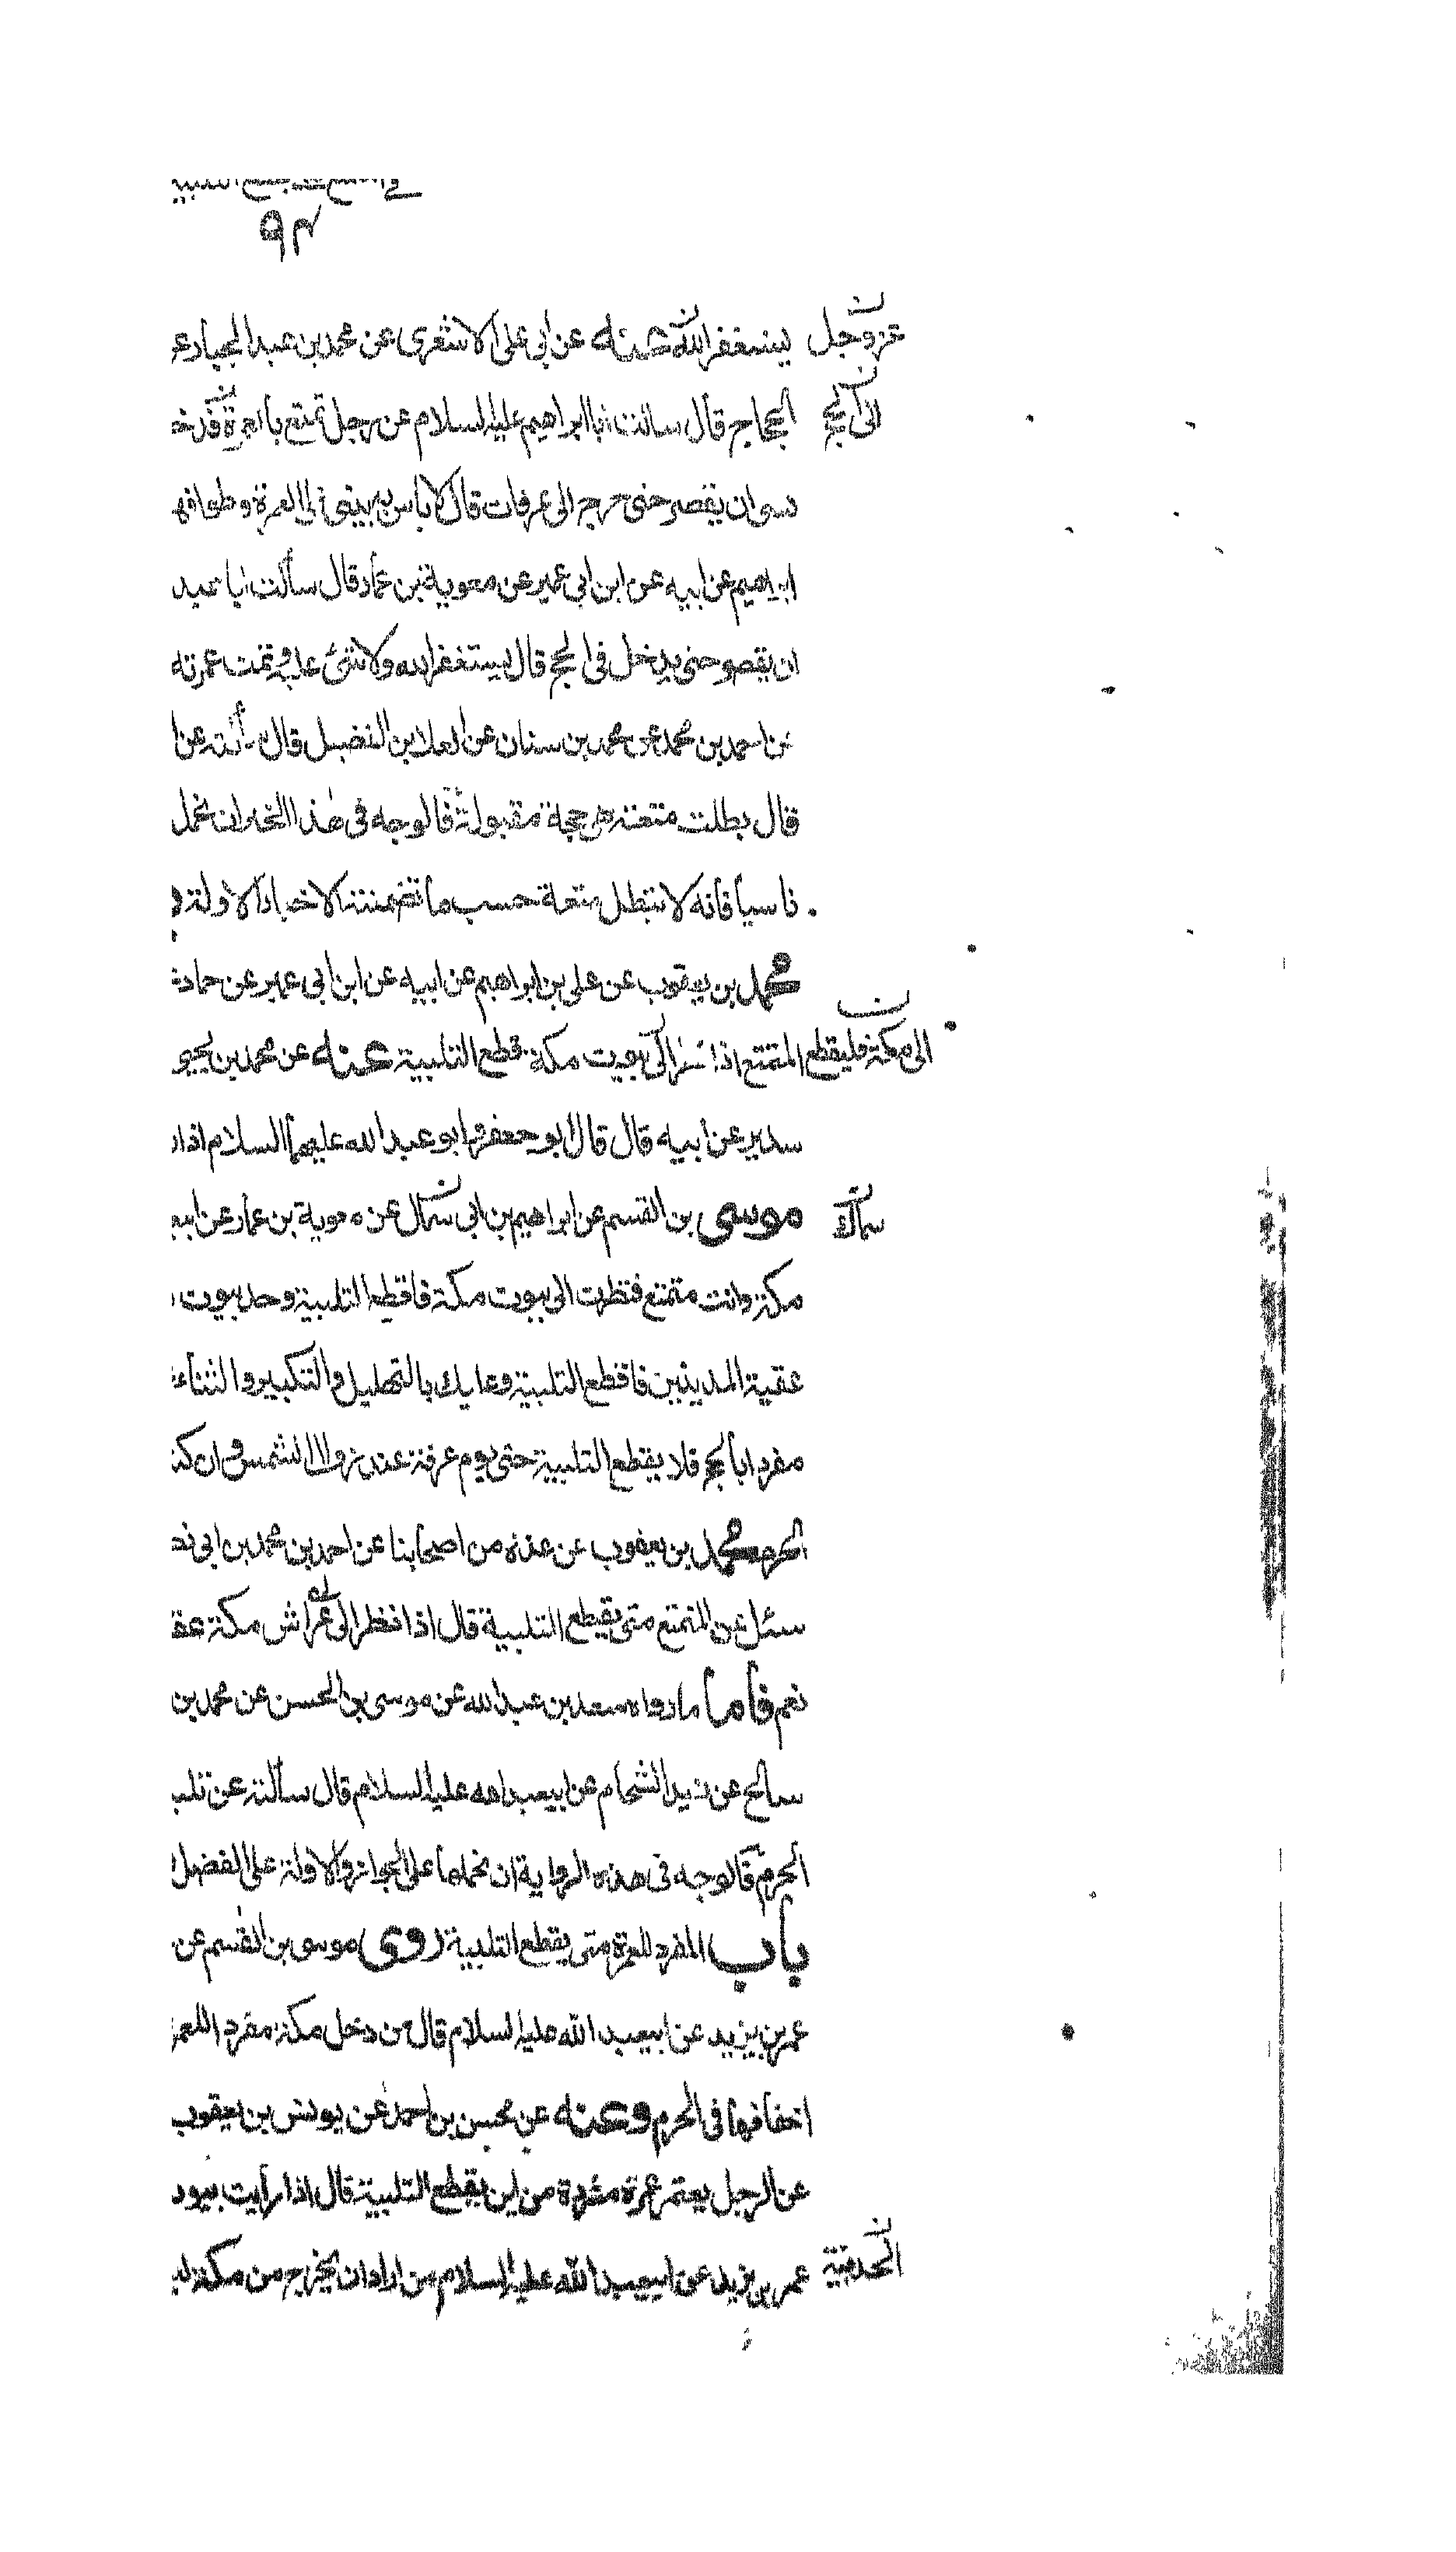 ٩٣
عز وجل
يستغفر الله عنه عن ابي على الاشعرى عن محمد بن عبد الجبار
الى الحج
الحجاج قال سالت ابا ابراهيم عليه السلام عن رجل تمتع بالعمرة فدخل
ان يقصر حتى خرج الى عرفات قال لا باس به يبنى على العمرة وطوافها
ابراهيم عن ابيه عن ابن ابي عمير عن معوية بن عمار قال سألت ابا عبد
ان يقصر حتى يدخل في الحج قال يستغفر الله ولا شئ عليه وتمت عمرته
عن احمد بن محمد عن محمد بن سنان عن العلا بن الفضيل قال سألته عن
قال بطلت متعته هى حجة مقبولة فالوجه فى هذا الخبر ان نحمل
ناسيا فانه لا تبطل متعة حسب ما تضمنته الاخبار الاولة
محمد بن يعقوب عن على بن ابراهيم عن ابيه عن ابن ابى عمير عن حماد
الى مكة فليقطع
المتمتع اذا نظر الى بيوت مكة قطع التلبية عنه عن محمد بن يحيى
سدير عن ابيه قال قال ابو جعفر وابو عبد الله عليهما السلام اذا
سماك
موسى بن القسم عن ابراهيم بن ابى سمال عن معوية بن عمار عن ابي
مكة وانت متمتع فنظرت الى بيوت مكة فاقطع التلبية وحد بيوت
عقبة المدينين فاقطع التلبية وعليك بالتهليل والتكبير والثناء
مفردا بالحج فلا يقطع التلبية حتى يوم عرفة عند زوال الشمس وان
الحرم محمد بن يعقوب عن عدة من اصحابنا عن احمد بن محمد بن ابى
سئل عن المتمتع متى يقطع التلبية قال اذا نظر الى عراش مكة
نعم فأما ما رواه سعد بن عبد الله عن موسى بن الحسن عن محمد بن
صالح عن زيد الشحام عن ابيعبد الله عليه السلام قال سألته عن
الحرم فالوجه فى هذه الرواية ان نحملها على الجواز والاولة على الفضل
باب المفرد للعمرة متى يقطع التلبية روى موسى بن القسم عن
عمر بن يزيد عن ابيعبد الله عليه السلام قال من دخل مكة مفردا للعمرة
اخفافها فى الحرم وعنه عن محسن بن احمد عن يونس بن يعقوب
عن الرجل يعتمر عمرة مفردة من اين يقطع التلبية قال اذا رأيت
الحديبية
عمر بن يزيد عن ابيعبد الله عليه السلام من اراد ان يخرج من مكة